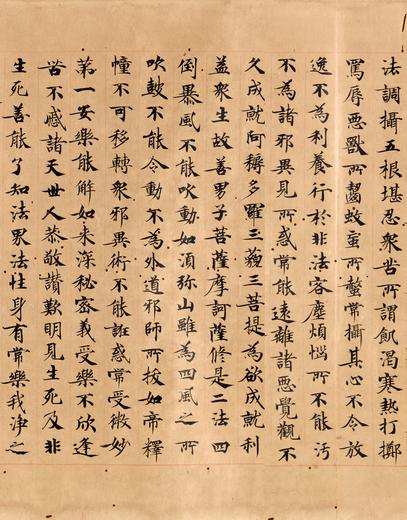 法調攝五根堪忍衆苦所謂飢渴寒熱打擲
罵辱惡獸所齧蚊虻所螫常攝其心不令放
逸不為利養行於非法客塵煩惱所不能汚
不為諸邪異見所惑常能遠離諸惡覺觀不
久成就阿耨多羅三藐三菩提為欲成就利
益衆生故善男子菩薩摩訶薩修是二法四
倒暴風不能吹動如須弥山雖為四風之所
吹皷不能令動不為外道邪師所拔如帝釋
幢不可移轉衆邪異術不能誑惑常受微妙
苐一安樂能解如来深秘密義受樂不欣逢
苦不慼諸天世人恭敬讚歎明見生死及非
生死善能了知法界法性身有常樂我淨之